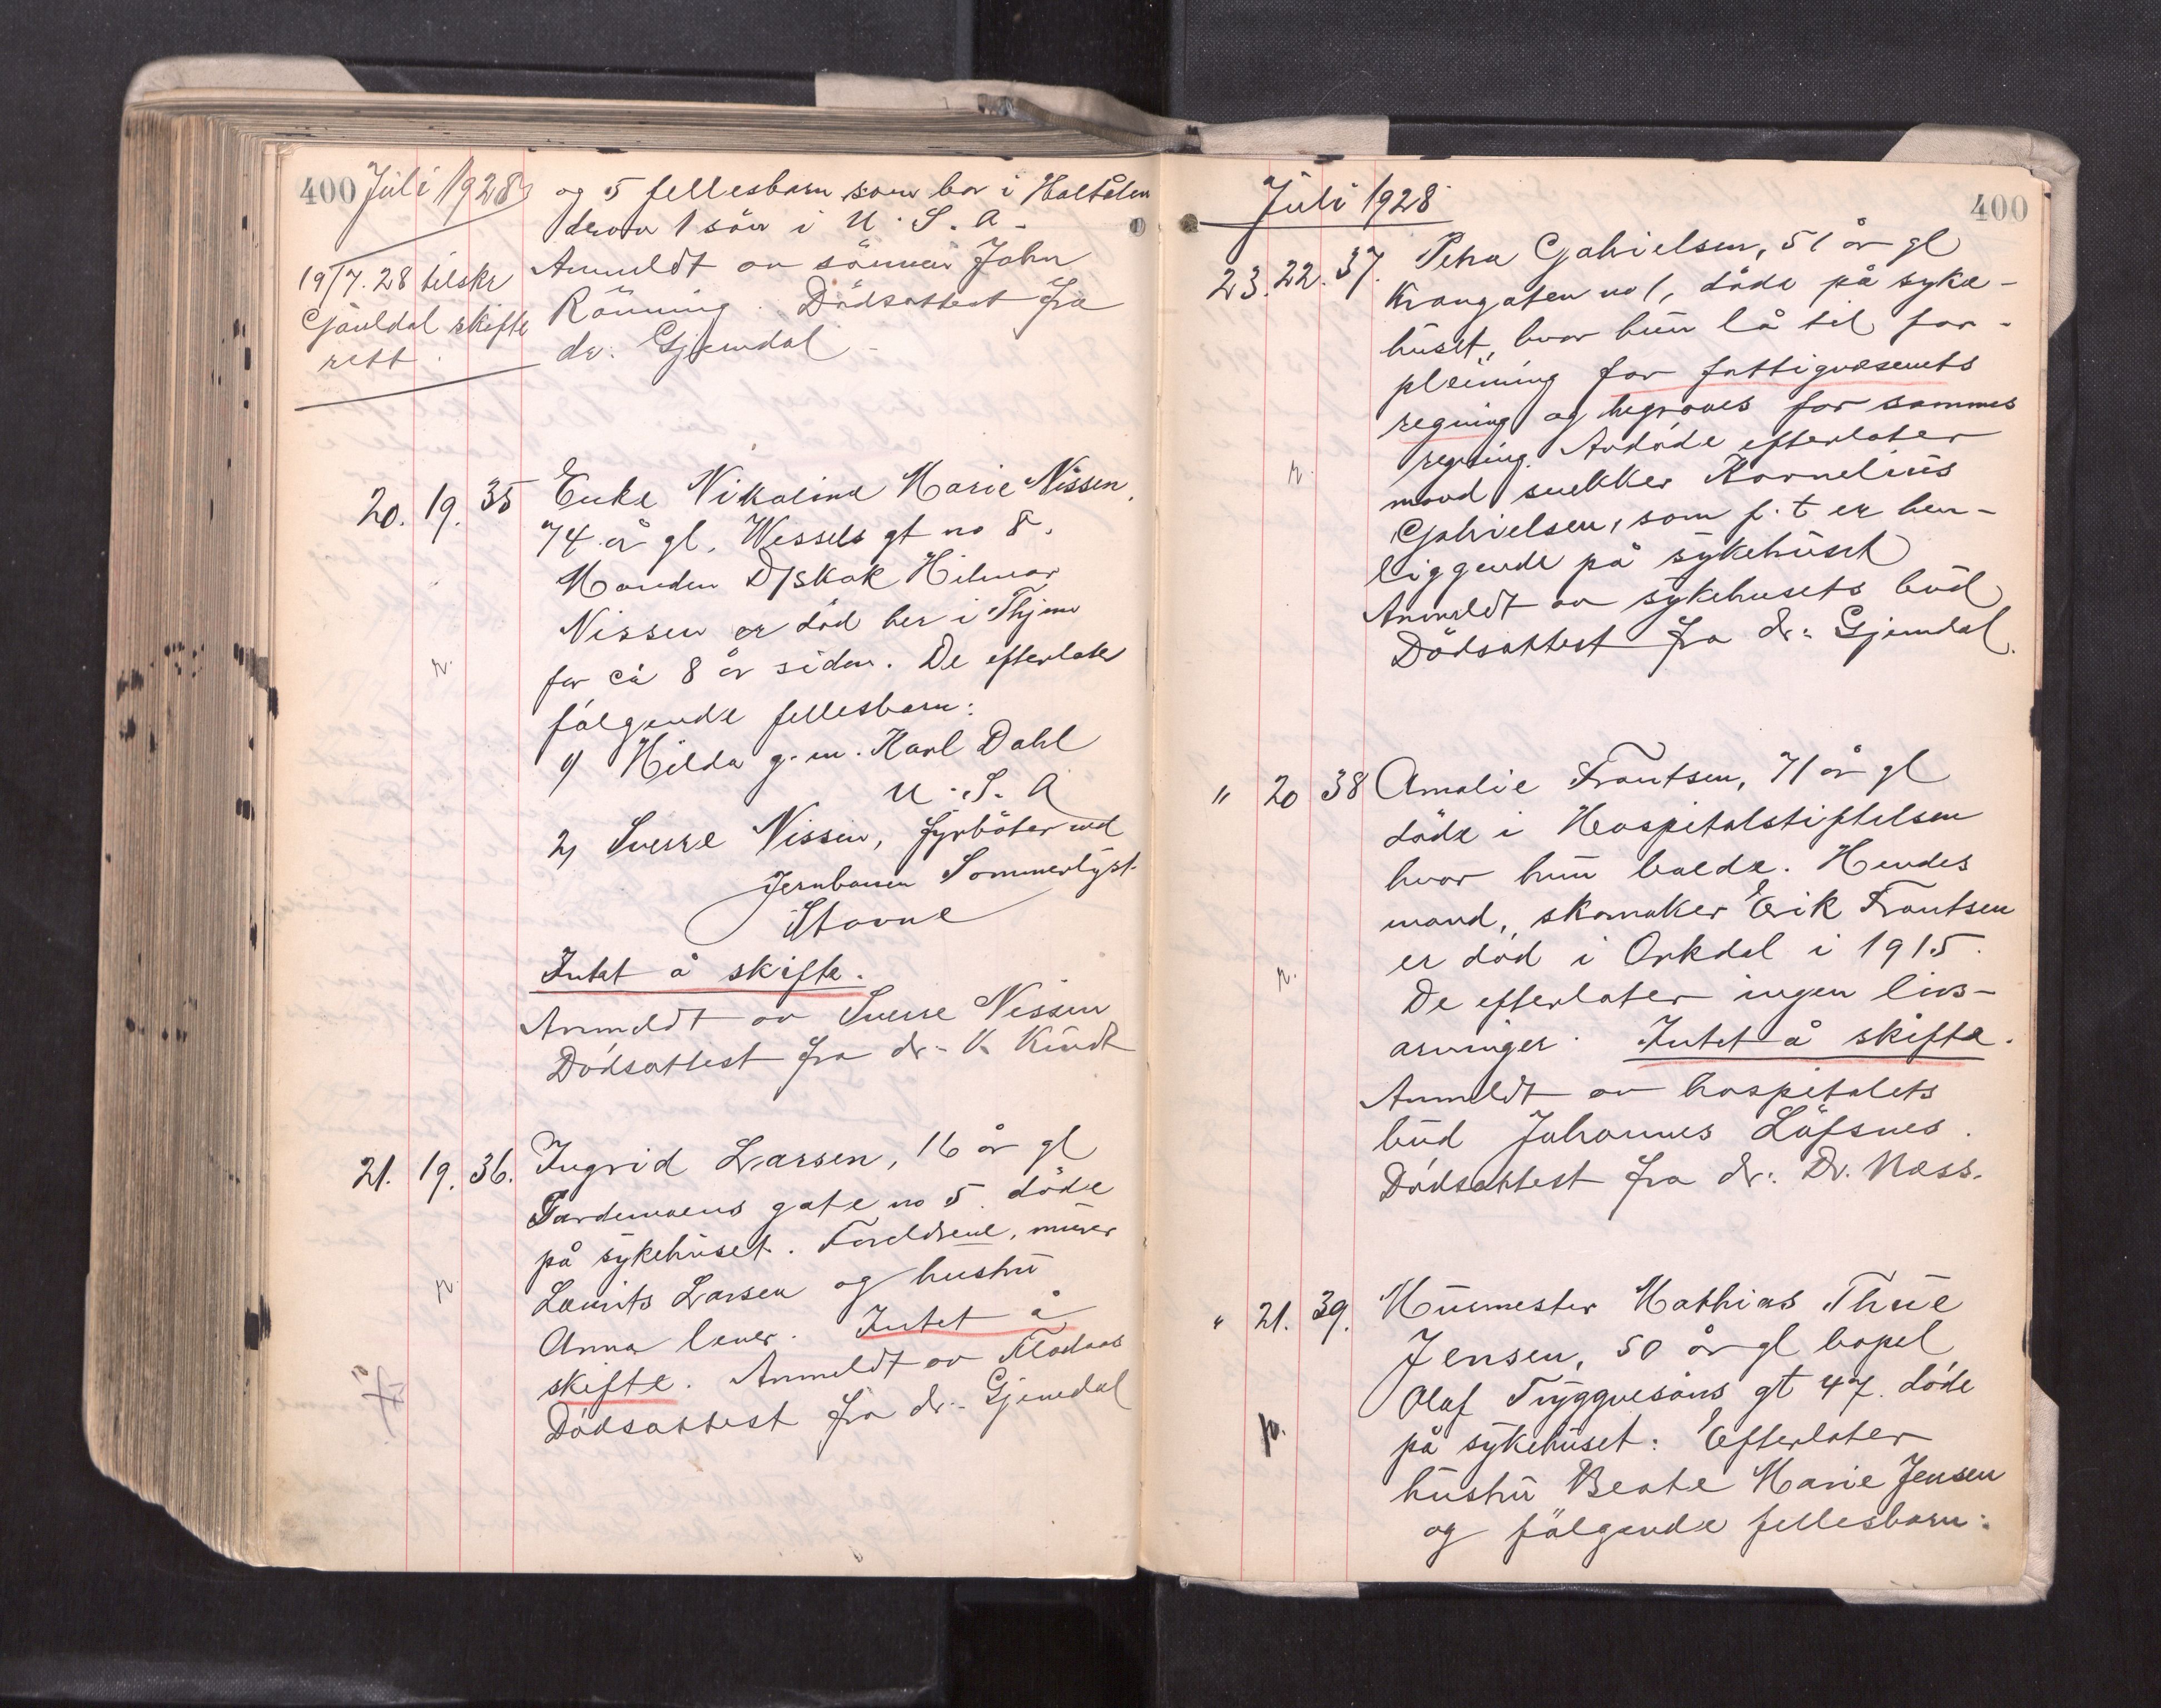 400 Juli 1928
og 5 fellesbarn som bor i Holtålen
derav 1 sön i U.S.A.
Anmeldt av sönnen John
Rönning. Dödsattest fra
dr. Gjemdal
19/7.28 tilskr
Gauldal skifte
rett.
20. 19. 35 Enke Nikoline Marie Nissen,
74 år gl. Wessels gt no 8.
Manden D/skok Hilmar
Nissen er död her i Thjem
for ca 8 år siden. De efterlater
fölgende fellesbarn:
1) Hilda g.m. Karl Dahl
U.S.A
2) Sverre Nissen, fyrböter ved
Jernbanen Sommerlyst
Stavne
Intet å skifte.
Anmeldt av Sverre Nissen
Dödsattest fra dr. K. Kindt
21. 19. 36. Ingrid Larsen, 16 år gl
gate no 5 döde
på sykehuset. Foreldrene, murer
Laurits Larsen og hustru
Anna lever. Intet å
skifte. Anmeldt av Flataas
Dödsattest fra dr. Gjemdal
Juli 1928
400
23. 22. 37. Petra Gabrielsen, 51 år gl
Krangaten no 1, döde på syke-
huset, hvor hun lå til for-
pleining for fattigvæsenets
regning og begraves for sammes
regning. Avdöde efterlater
mand snekker Kornelius
Gabrielsen, som f.t er hen-
liggende på sykehuset
Anmeldt av sykehusets bud
Dödsattest fra dr. Gjemdal.
" 20 38 Amalie Frantsen, 71 år gl
döde i Hospitalstiftelsen
hvor hun bodde. Hendes
mand, skomaker Erik Frantsen
er död i Orkdal i 1915.
De efterlater ingen livs-
arvinger. Intet å skifte.
Anmeldt av hospitalets
bud Johannes Löfsnes.
Dödsattest fra dr. Dr. Næss.
" 21. 39. Murmester Mathias Thue
Jensen, 50 år gl bopel
Olaf Tryggvesöns gt 47. döde
på sykehuset. Efterlater
hustru Beate Marie Jensen
og fölgende fellesbarn: